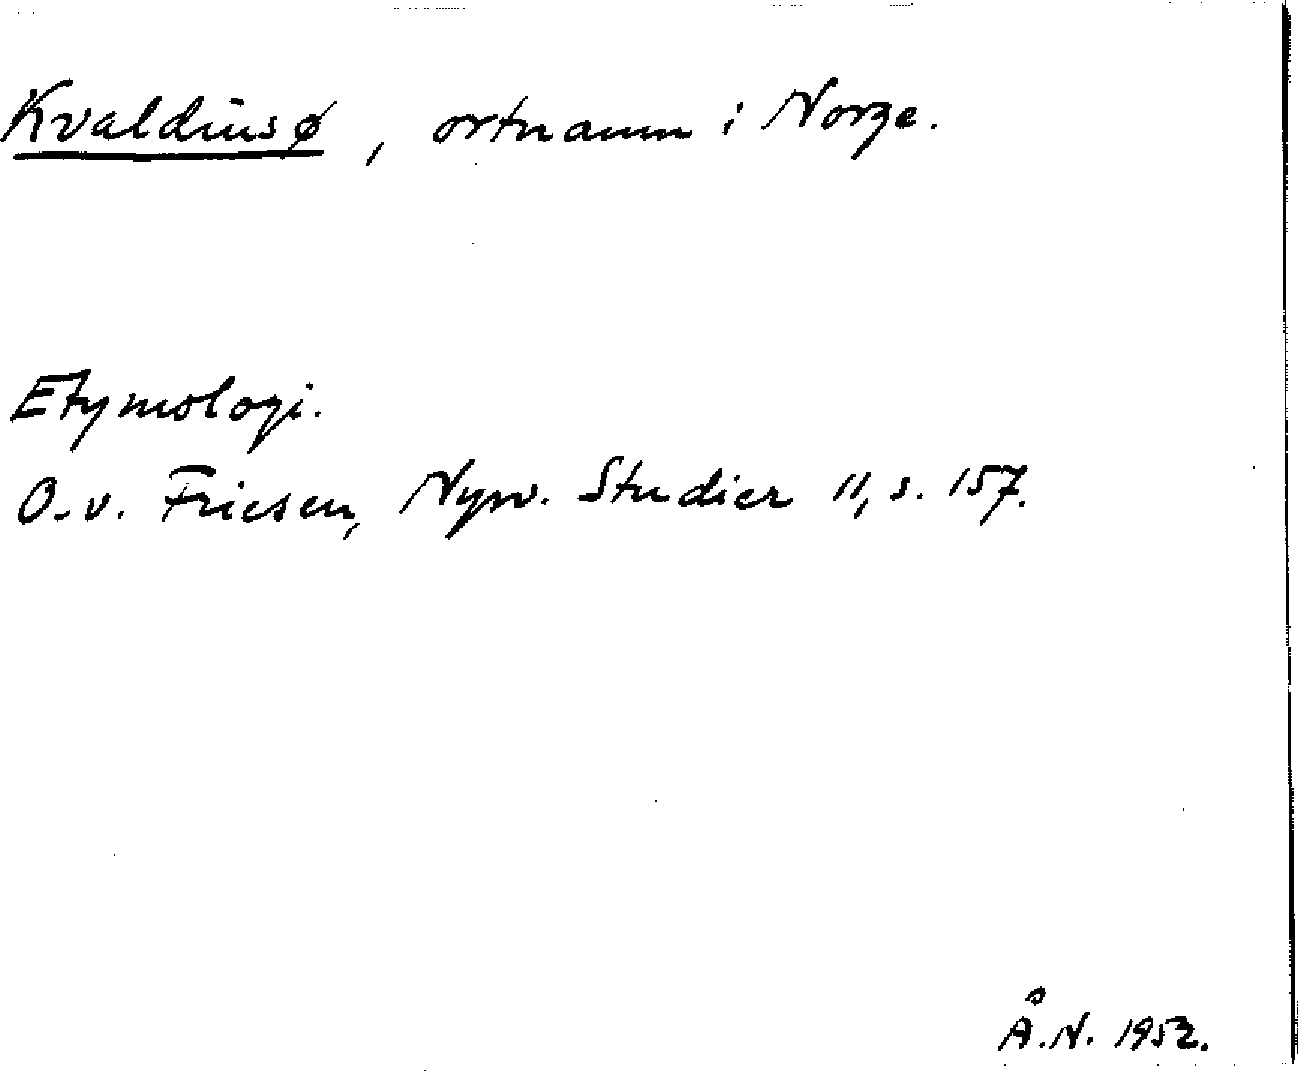 Kvaldinsø, ortnamn i Norge.
Etymologi.
O. v. Friesen, Nysv. Studier 11, s. 157.
Å.N. 1952.